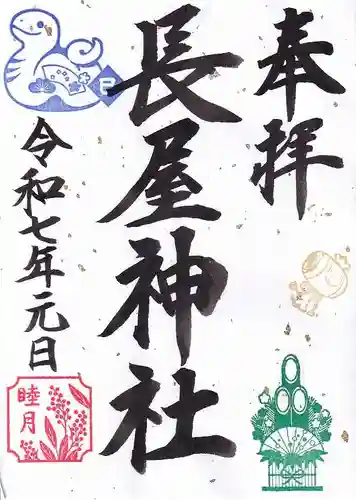 奉拝
長屋神社
令和七年元日
巳
睦月